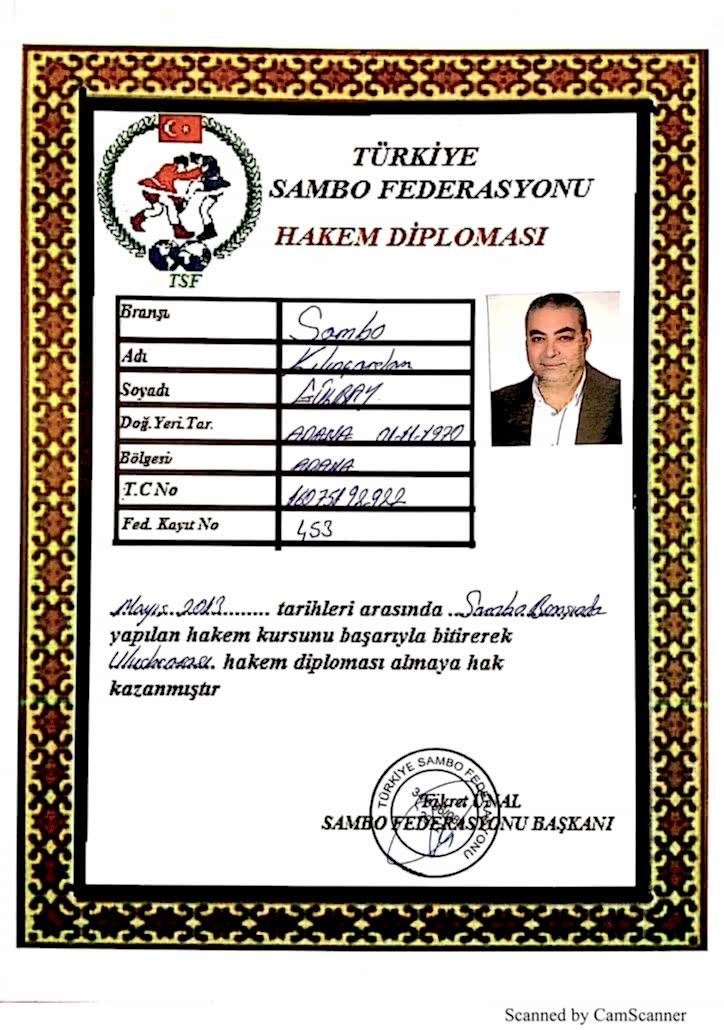 TÜRKİYE
SAMBO FEDERASYONU
HAKEM DİPLOMASI
TSF
Branşı Sambo
Adı Kılınçarslan
Soyadı GÜLBAY
Doğ.Yeri.Tar. ADANA 01-11-1970
Bölgesi ADANA
T.C No
Fed. Kayıt No 453
Mayıs 2013 tarihleri arasında Sambo Branşında
yapılan hakem kursunu başarıyla bitirerek
Uluslararası. hakem diploması almaya hak
kazanmıştır
TÜRKİYE SAMBO FEDERASYONU
Fikret ÜNAL
SAMBO FEDERASYONU BAŞKANI
Scanned by CamScanner